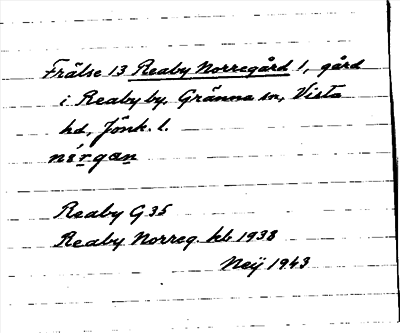 Frälse 13 Reaby Norregård 1, gård
i Reaby by, Gränna sn, Vista
hd, Jönk. l.
nórgan
Reaby G 35
Reaby Norreg. kb 1938
Neij 1943